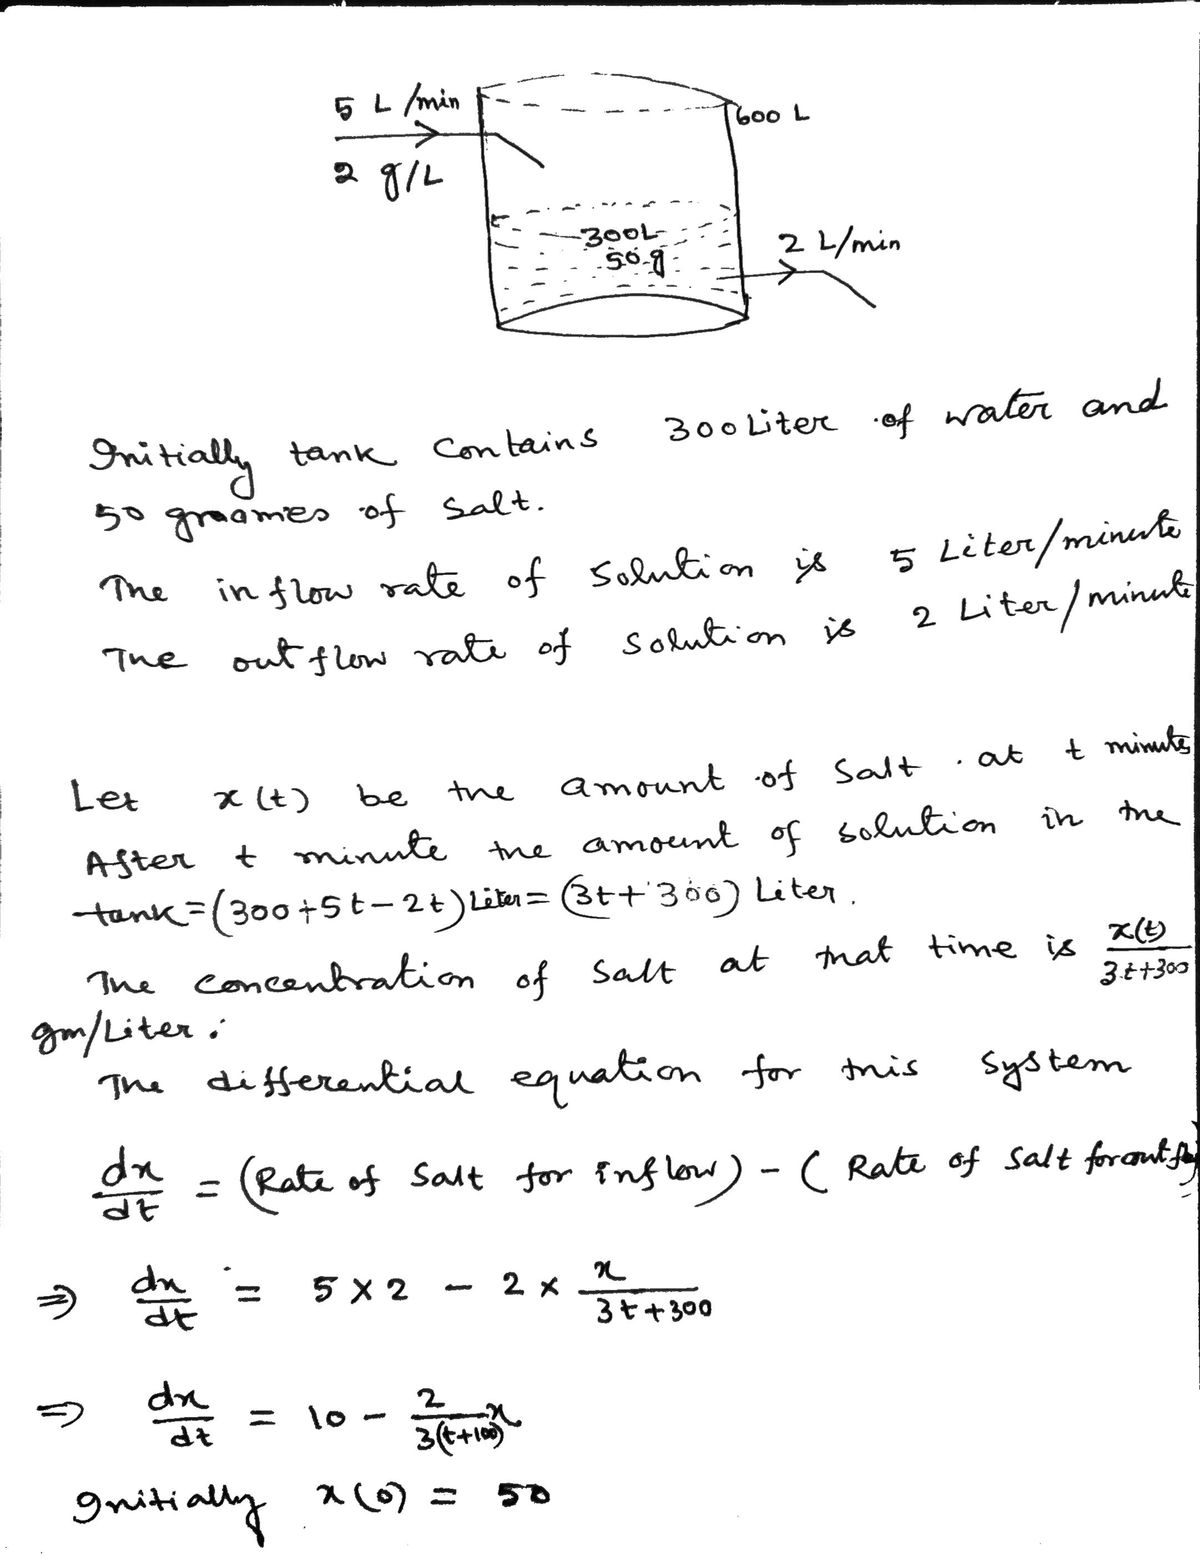 5 L/min
600 L
2 g/L
300L
50 g
2 L/min
Initially tank contains 300 Liter of water and
50 graames of salt.
The inflow rate of solution is 5 Liter/minute
The outflow rate of solution is 2 Liter/minute
Let x(t) be the amount of salt at t minutes
After t minute the amount of solution in the
tank=(300+5t-2t) Liter = (3t+300) Liter.
The concentration of salt at that time is x(t)/(3t+300)
gm/Liter.
The differential equation for this system
dx/dt = (Rate of salt for inflow) - (Rate of salt for outflow)
⇒ dx/dt = 5 × 2 - 2 × x/(3t+300)
⇒ dx/dt = 10 - 2/(3(t+100)) x
Initially x(0) = 50